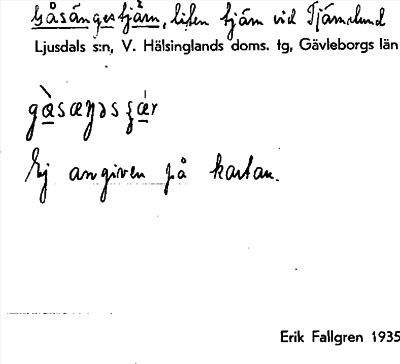 Gåsängestjärn, liten tjärn vid Tjärnslund
Ljusdals s:n, V. Hälsinglands doms. tg, Gävleborgs län
Ej angiven på kartan.
Erik Fallgren 1935